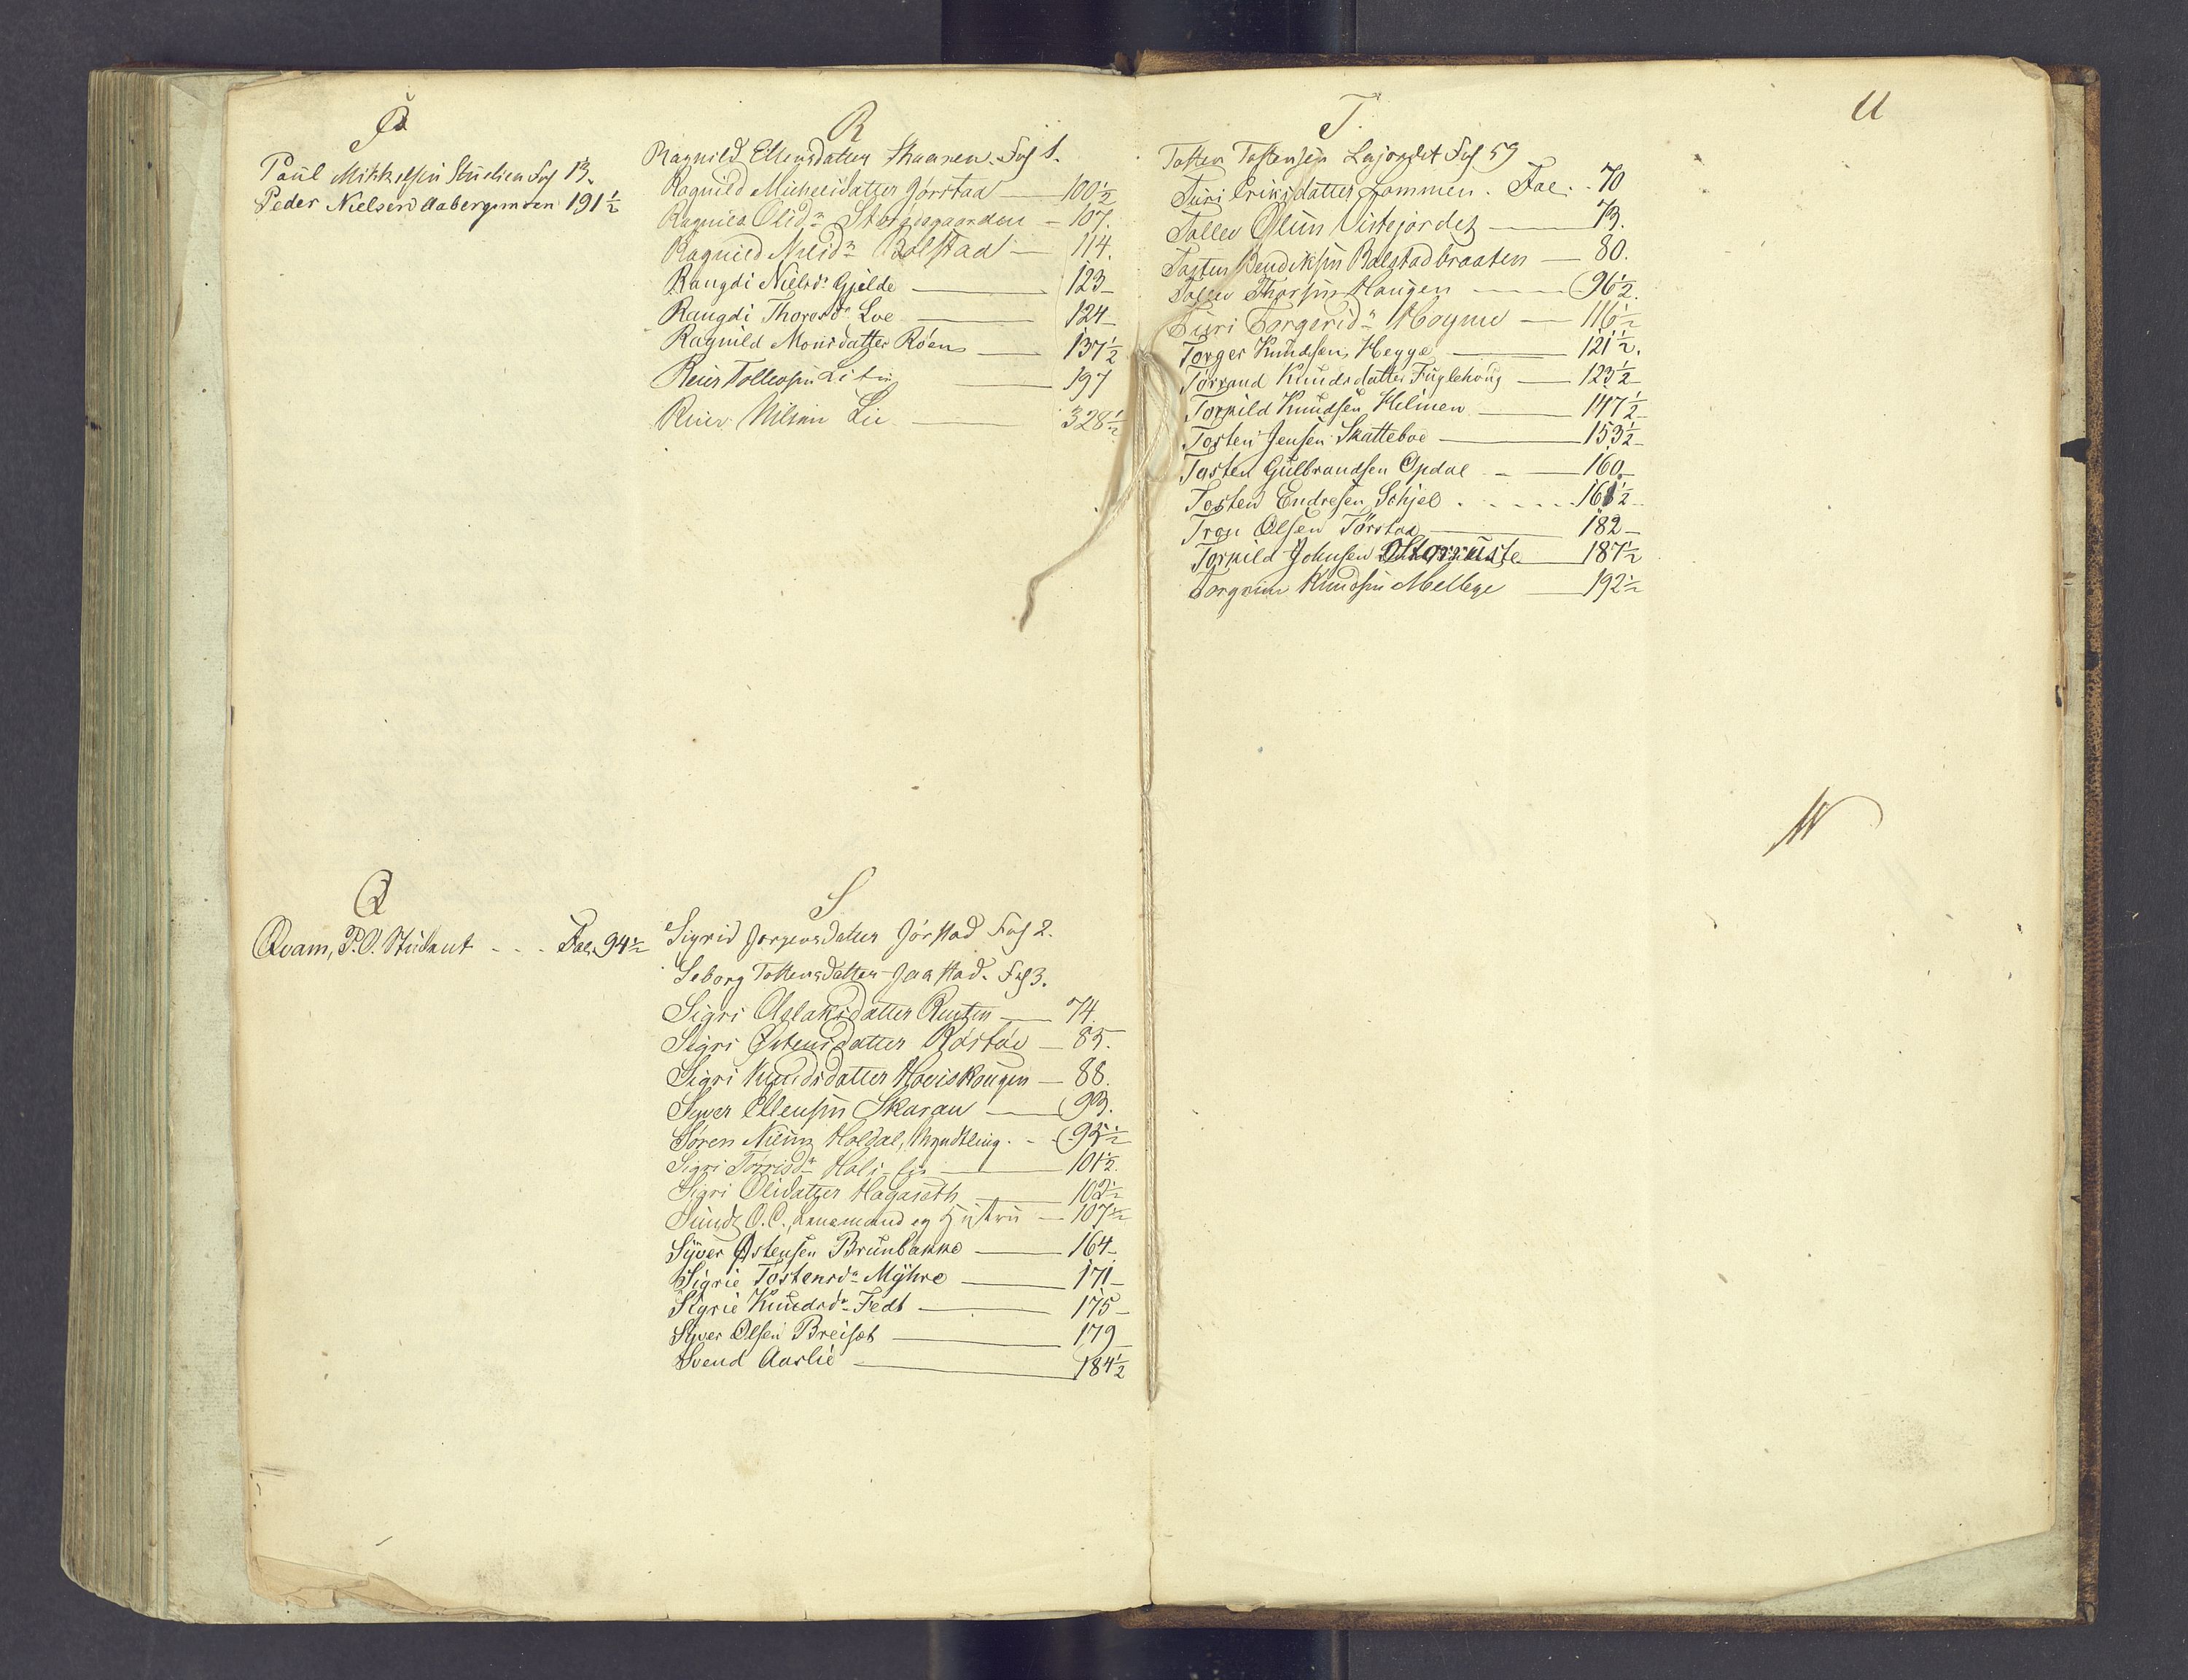 P
Paul Mikkelsen Studien Fol 13.
Peder Nielsen Aabergsmoen 191½
Q
Qvam, P. O. Student - - - Fol. 94½
R
Ragnild Ellensdatter Skaaren. Fol 1.
Ragnild Michelsdatter Jörstad — 100½
Ragnild Olsdr — 107.
Ragnild Nielsdr Bolstad — 114.
Rangdi Nielsdr Gjelde — 123
Rangdi Thorsdr Loe — 124
Ragnild Monsdatter Röen — 137½
Reier Tollevsen — 197
Reier Nilsen Lie — 328½
S
Sigrid Jörgensdatter Jörstad Fol 2.
Seborg Tostensdatter Jaastad. Fol 3.
Sigri Aslaksdatter Rusten — 74.
Sigri Östensdatter Röstöe — 85.
Sigri Knudsdatter Hovishaugen — 88.
Syver Ellensen Skaran — 93.
Sören Holdal, Myndtling. - 95½
Sigri — 101½
Sigri Olsdatter Hagaseth — 102½
Sundt O. C., Lensmand og Hustru — 107½
Syver Östensen Brunbakke — 164
Sigrie Tostensdr Myhre — 171
Sigrie Knudsdr Fedt — 175
Syver Olsen Breiset — 179
Svend Aaslie — 184½
T.
Tosten Tostensen Lajordet Fol 59
Turi Eriksdatter Lommen. Fol. 70
Tollev Olsen Vistejordet — 73.
Tosten Bendiksen Bolstadbraaten — 80.
Tollev Thorsen Haugen — 96½.
Turi Torgersdr Moyne — 116½
Torger Knudsen Hegge — 121½.
Torrand Knudsdatter Fuglehoug — 123½
Torkild Knudsen Helmen — 147½
Tosten Jensen Skatteboe — 153½
Tosten Gulbrandsen Opdal — 160
Tosten Endresen Schjel . - - - 161½
Tron Olsen Törstad — 182
Torkild Johnsen Storruste — 187½
Torgrim Knudsen Mellege — 192½
U
W